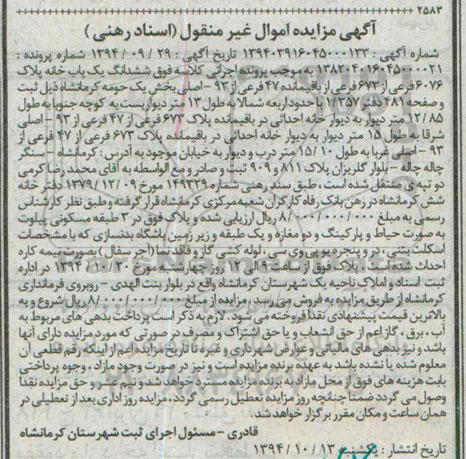 ۲۵۸۳
آگهی مزایده اموال غیر منقول (اسناد رهنی)
شماره آگهی : ۱۳۹۴۰۳۹۱۶۰۴۵۰۰۰۱۳۳ تاریخ آگهی : ۲۹ / ۰۹ / ۱۳۹۴ شماره پرونده :
۱۳۸۲۰۴۰۱۶۰۴۵۰۰۰۰۲۱ به موجب پرونده اجرائی کلاسه فوق ششدانگ یک باب خانه پلاک
۶۰۷۶ فرعی از ۶۷۳ فرعی از باقیمانده ۴۷ فرعی از ۹۳ - اصلی بخش یک حومه کرمانشاه ذیل ثبت
و صفحه ۴۸۱ دفتر ۱/۳۵۷ با حدود اربعه شمالا به طول ۱۳ متر دیواریست به کوچه جنوبا به طول
۱۲/۸۵ متر دیوار به دیوار خانه احداثی در باقیمانده پلاک ۶۷۳ فرعی از ۴۷ فرعی از ۹۳ - اصلی
شرقا به طول ۱۵ متر دیوار به دیوار خانه احداثی در باقیمانده پلاک ۶۷۳ فرعی از ۴۷ فرعی از
۹۳ - اصلی غربا به طول ۱۵/۱۰ متر درب و دیوار به خیابان موجود به آدرس : کرمانشاه - سنگر
چاله چاله - بلوار گلریزان پلاک ۸۱۱ و ۹۰۹ ثبت و صادر و مع الواسطه به آقای محمد رضا کرمی
دو تپه ی منتقل شده است، طبق سند رهنی شماره ۱۴۹۳۳۹ مورخ ۰۹/ ۱۲/ ۱۳۷۹ دفتر خانه
شش کرمانشاه در رهن بانک رفاه کارگران شعبه مرکزی کرمانشاه قرار گرفته و طبق نظر کارشناس
رسمی به مبلغ ۸/۰۰۰/۰۰۰/۰۰۰ ریال ارزیابی شده و پلاک فوق در ۳ طبقه مسکونی پیلوت
به صورت حیاط و پارکینگ و دو مغازه و یک طبقه و زیر زمین باشگاه بدنسازی که با مشخصات
اسکلت بتنی، در و پنجره یو پی وی سی، لوله کشی گاز و فاقد نما (آجر سفال) بصورت نیمه کاره
احداث شده است. پلاک فوق از ساعت ۹ الی ۱۲ روز چهارشنبه مورخ ۳۰ / ۱۰ / ۱۳۹۴ در اداره
ثبت اسناد و املاک ناحیه یک شهرستان کرمانشاه واقع در بلوار بنت الهدی - روبروی فرمانداری
کرمانشاه از طریق مزایده به فروش می رسد، مزایده از مبلغ ۸/۰۰۰/۰۰۰/۰۰۰ ریال شروع و به
بالاترین قیمت پیشنهادی نقدا فروخته می شود. لازم به ذکر است پرداخت بدهی های مربوط به
آب ، برق ، گاز اعم از حق انشعاب و یا حق اشتراک و مصرف در صورتی که مورد مزایده دارای آنها
باشد و نیز بدهی های مالیاتی و عوارض شهرداری و غیره تا تاریخ مزایده اعم از اینکه رقم قطعی آن
معلوم شده یا نشده باشد به عهده برنده مزایده است و نیز در صورت وجود مازاد ، وجوه پرداختی
بابت هزینه های فوق از محل مازاد به برنده مزایده مسترد خواهد شد و نیم عشر و حق مزایده نقدا
وصول می گردد ضمنا چنانچه روز مزایده تعطیل رسمی گردد، مزایده روز اداری بعد از تعطیلی در
همان ساعت و مکان مقرر برگزار خواهد شد.
قادری - مسئول اجرای ثبت شهرستان کرمانشاه
تاریخ انتشار : یکشنبه ۱۳ / ۱۰ / ۱۳۹۴